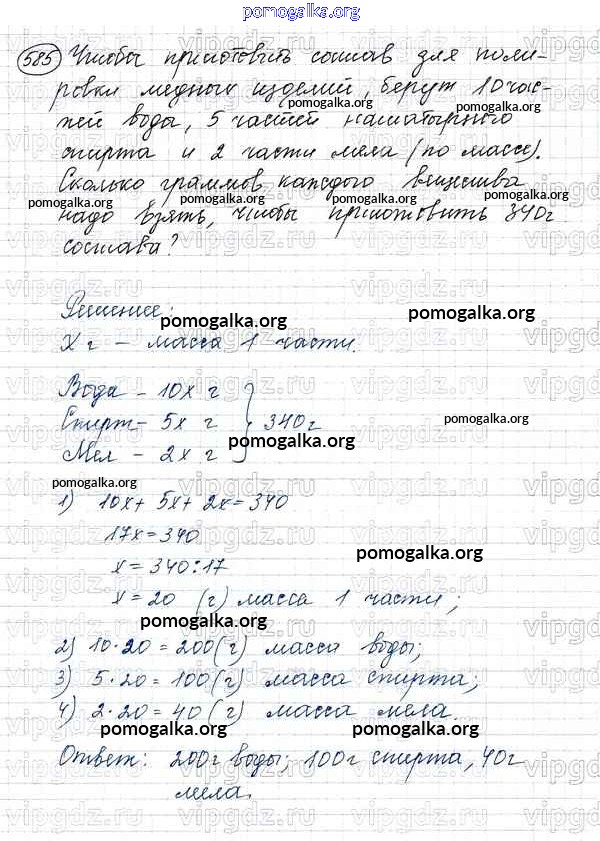 pomogalka.org
585 Чтобы приготовить состав для поли-
ровки медных изделий, берут 10 час-
pomogalka.org
pomogalka.org
тей воды, 5 частей нашатырного
спирта и 2 части мела (по массе).
pomogalka.org
Сколько граммов каждого вещества
pomogalka.org
pomogalka.org
надо взять, чтобы приготовить 340г
состава?
vipgdz.ru
Решение:
pomogalka.org
X г - масса 1 части.
Вода - 10x г
Спирт - 5x г } 340г
pomogalka.org
pomogalka.org
Мел - 2x г
pomogalka.org
1) 10x + 5x + 2x = 340
17x = 340
pomogalka.org
x = 340 : 17
x = 20 (г) масса 1 части;
pomogalka.org
2) 10·20 = 200 (г) масса воды;
3) 5·20 = 100 (г) масса спирта;
4) 2·20 = 40 (г) масса мела.
pomogalka.org
pomogalka.org
Ответ: 200г воды; 100г спирта, 40г
мела.